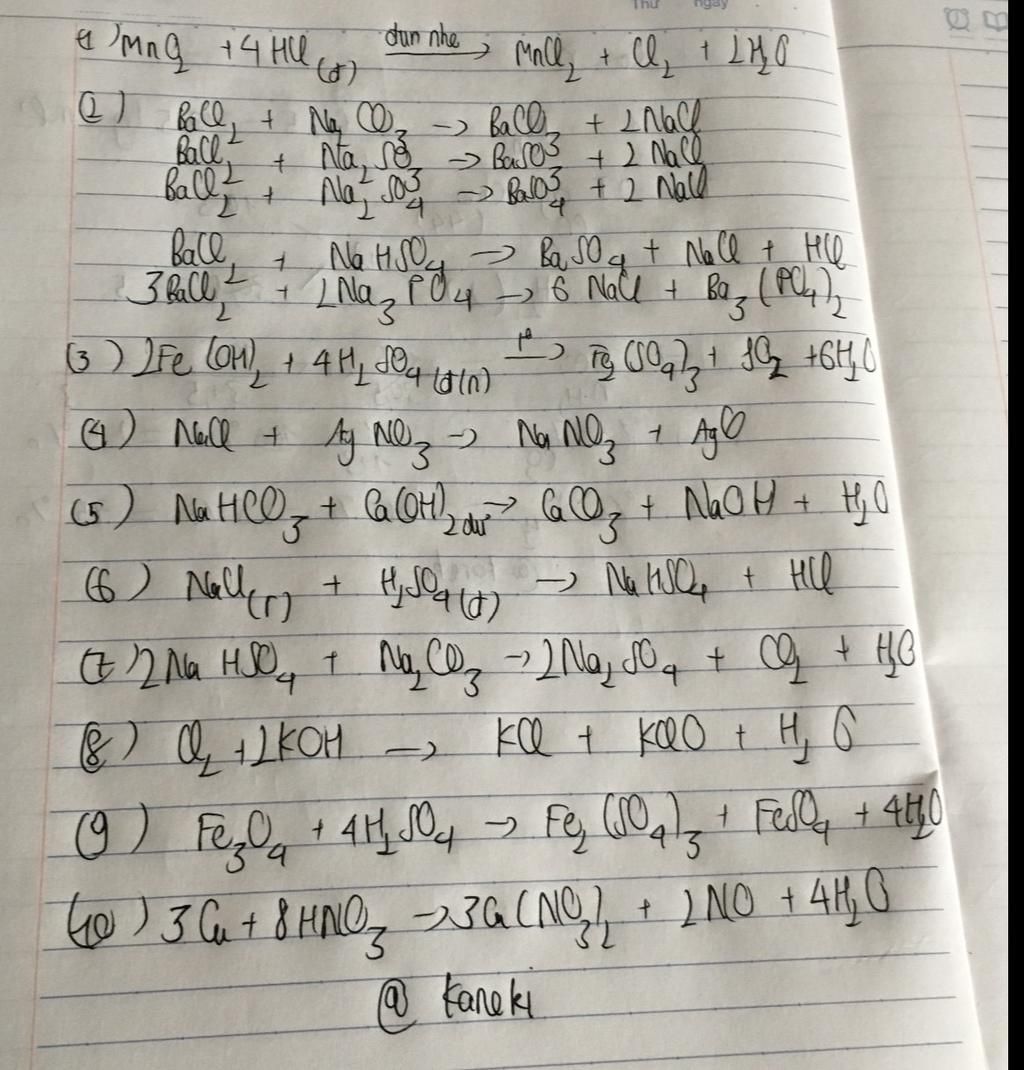 Thứ ngày
(1) MnO2 + 4HCl (đ) đun nhẹ → MnCl2 + Cl2 + 2H2O
(2) BaCl2 + Na2CO3 → BaCO3 + 2NaCl
BaCl2 + Na2SO3 → BaSO3 + 2NaCl
BaCl2 + Na2SO4 → BaSO4 + 2NaCl
BaCl2 + NaHSO4 → BaSO4 + NaCl + HCl
3BaCl2 + 2Na3PO4 → 6NaCl + Ba3(PO4)2
(3) 2Fe(OH)2 + 4H2SO4 (đ/n) t° → Fe2(SO4)3 + SO2 + 6H2O
(4) NaCl + AgNO3 → NaNO3 + AgCl
(5) NaHCO3 + Ca(OH)2 dư → CaCO3 + NaOH + H2O
(6) NaCl(r) + H2SO4 (đ) → NaHSO4 + HCl
(7) 2NaHSO4 + Na2CO3 → 2Na2SO4 + CO2 + H2O
(8) Cl2 + 2KOH → KCl + KClO + H2O
(9) Fe3O4 + 4H2SO4 → Fe2(SO4)3 + FeSO4 + 4H2O
(10) 3Cu + 8HNO3 → 3Cu(NO3)2 + 2NO + 4H2O
@ Kaneki